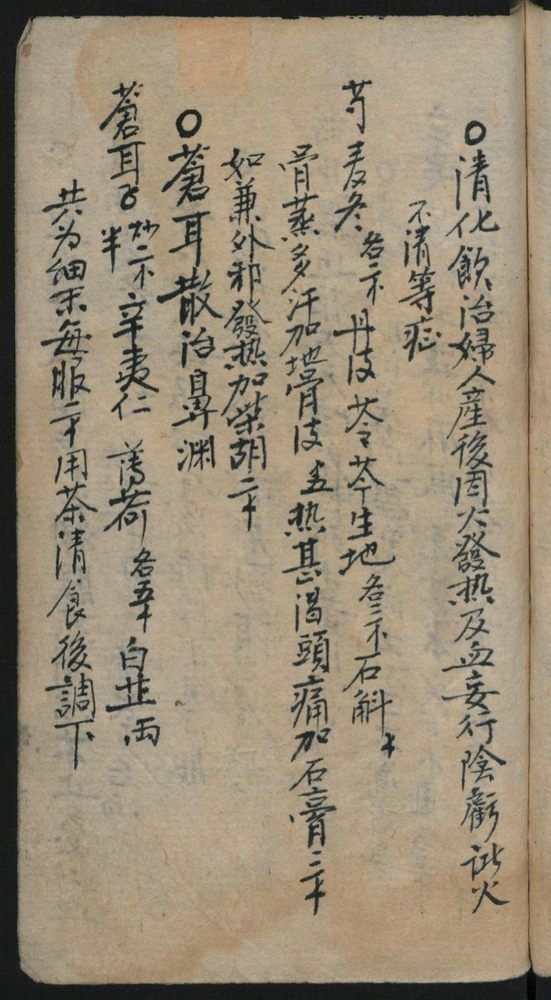 ○清化飲治婦人産後因火發热及血妄行陰虧諸火
不清等症
芍麦冬各二不丹皮苓芩生地各三不石斛
骨蒸多汗加地骨皮 热甚渴頭痛加石膏二
如兼外邪發热加柴胡二
○蒼耳散治鼻渊
蒼耳子炒二不半辛夷仁 薄荷各五 白芷一両
共为細末每服二用茶清食後調下